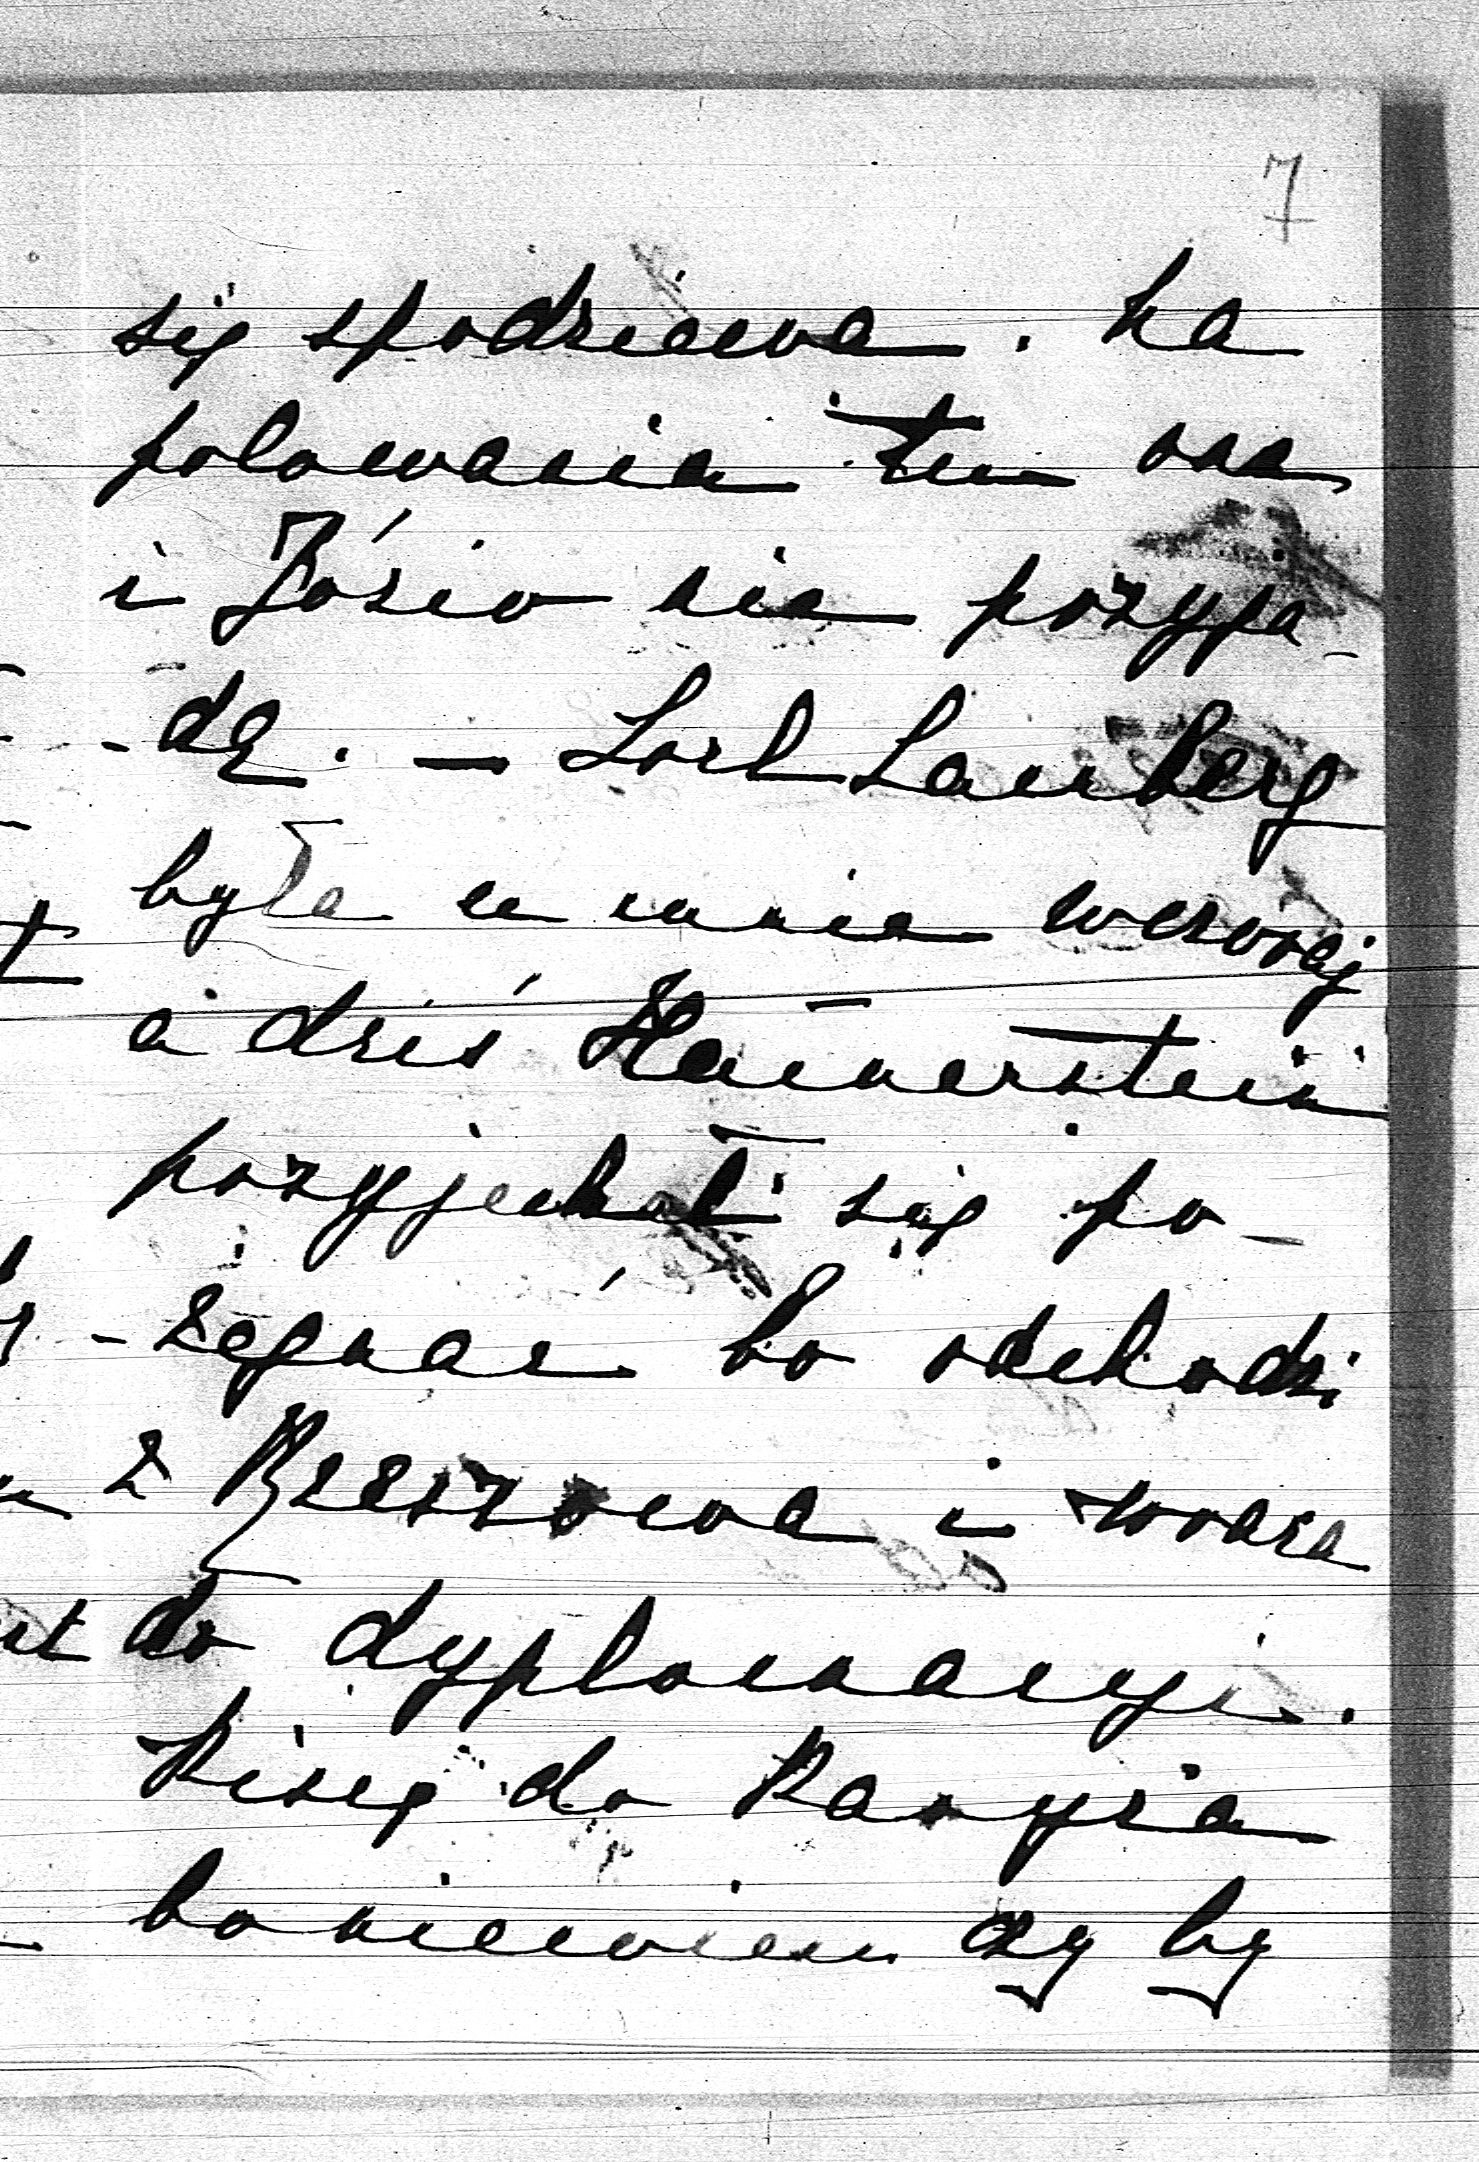 7
się spodziewa. Na
polowania tu ona
i Józio nie przyja-
-dą. — Lori Lamberg
była u mnie wczoraj
a dziś Hammerstein
przyjechał się po-
-żegnać bo odchodzi
z Rzeszowa i wraca
do dyplomacyi.
Piszę do Paryża
bo nie wiem czy by